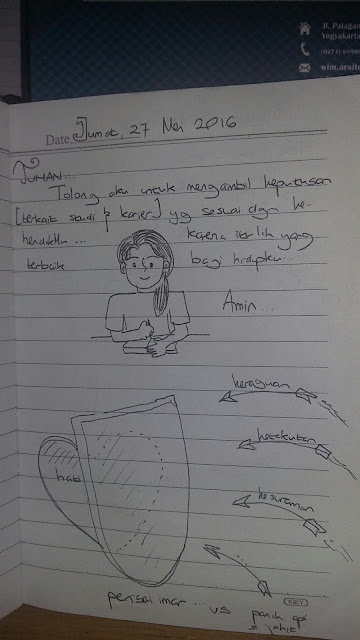 Jl. Palagan
Yogyakarta
(0274)
wim.arsit
Date Jumat, 27 Mei 2016
TUHAN...
Tolong aku untuk mengambil keputusan
[terkait studi & karier] yg sesuai dgn ke-
hendakMu ... karena itulah yang
terbaik bagi hidupku...
Amin...
keraguan
ketakutan
hati
kesuraman
perisai iman ... vs panah api
si jahat